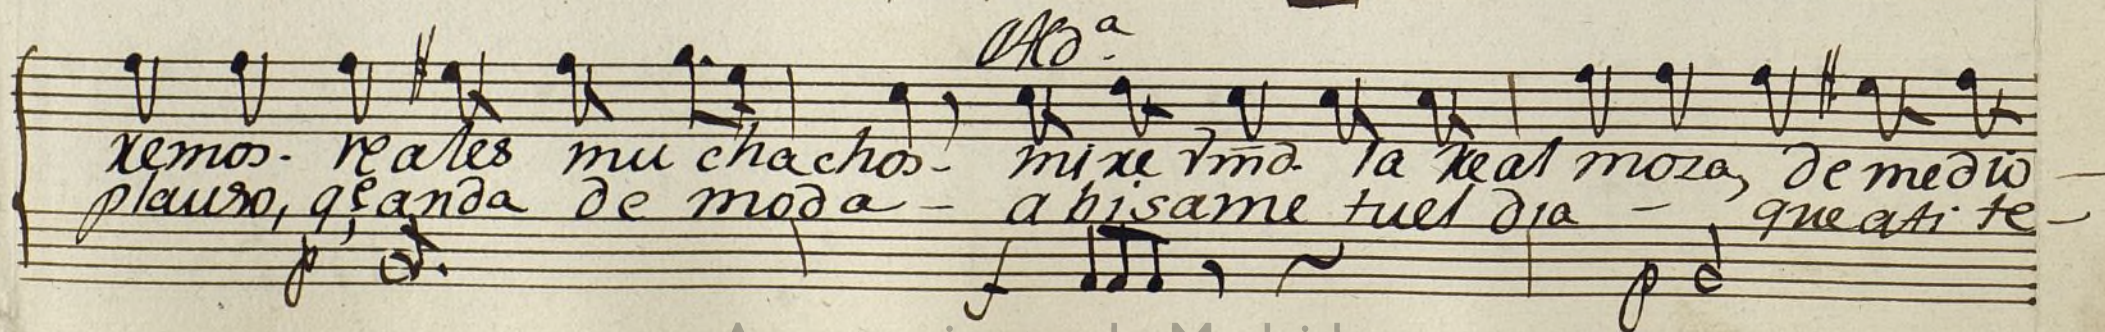 remos. reales muchachos - mire Vmd. la real moza, de medio -
plauso, q.e anda de moda - abisame tu el dia - que a ti te -
p f p